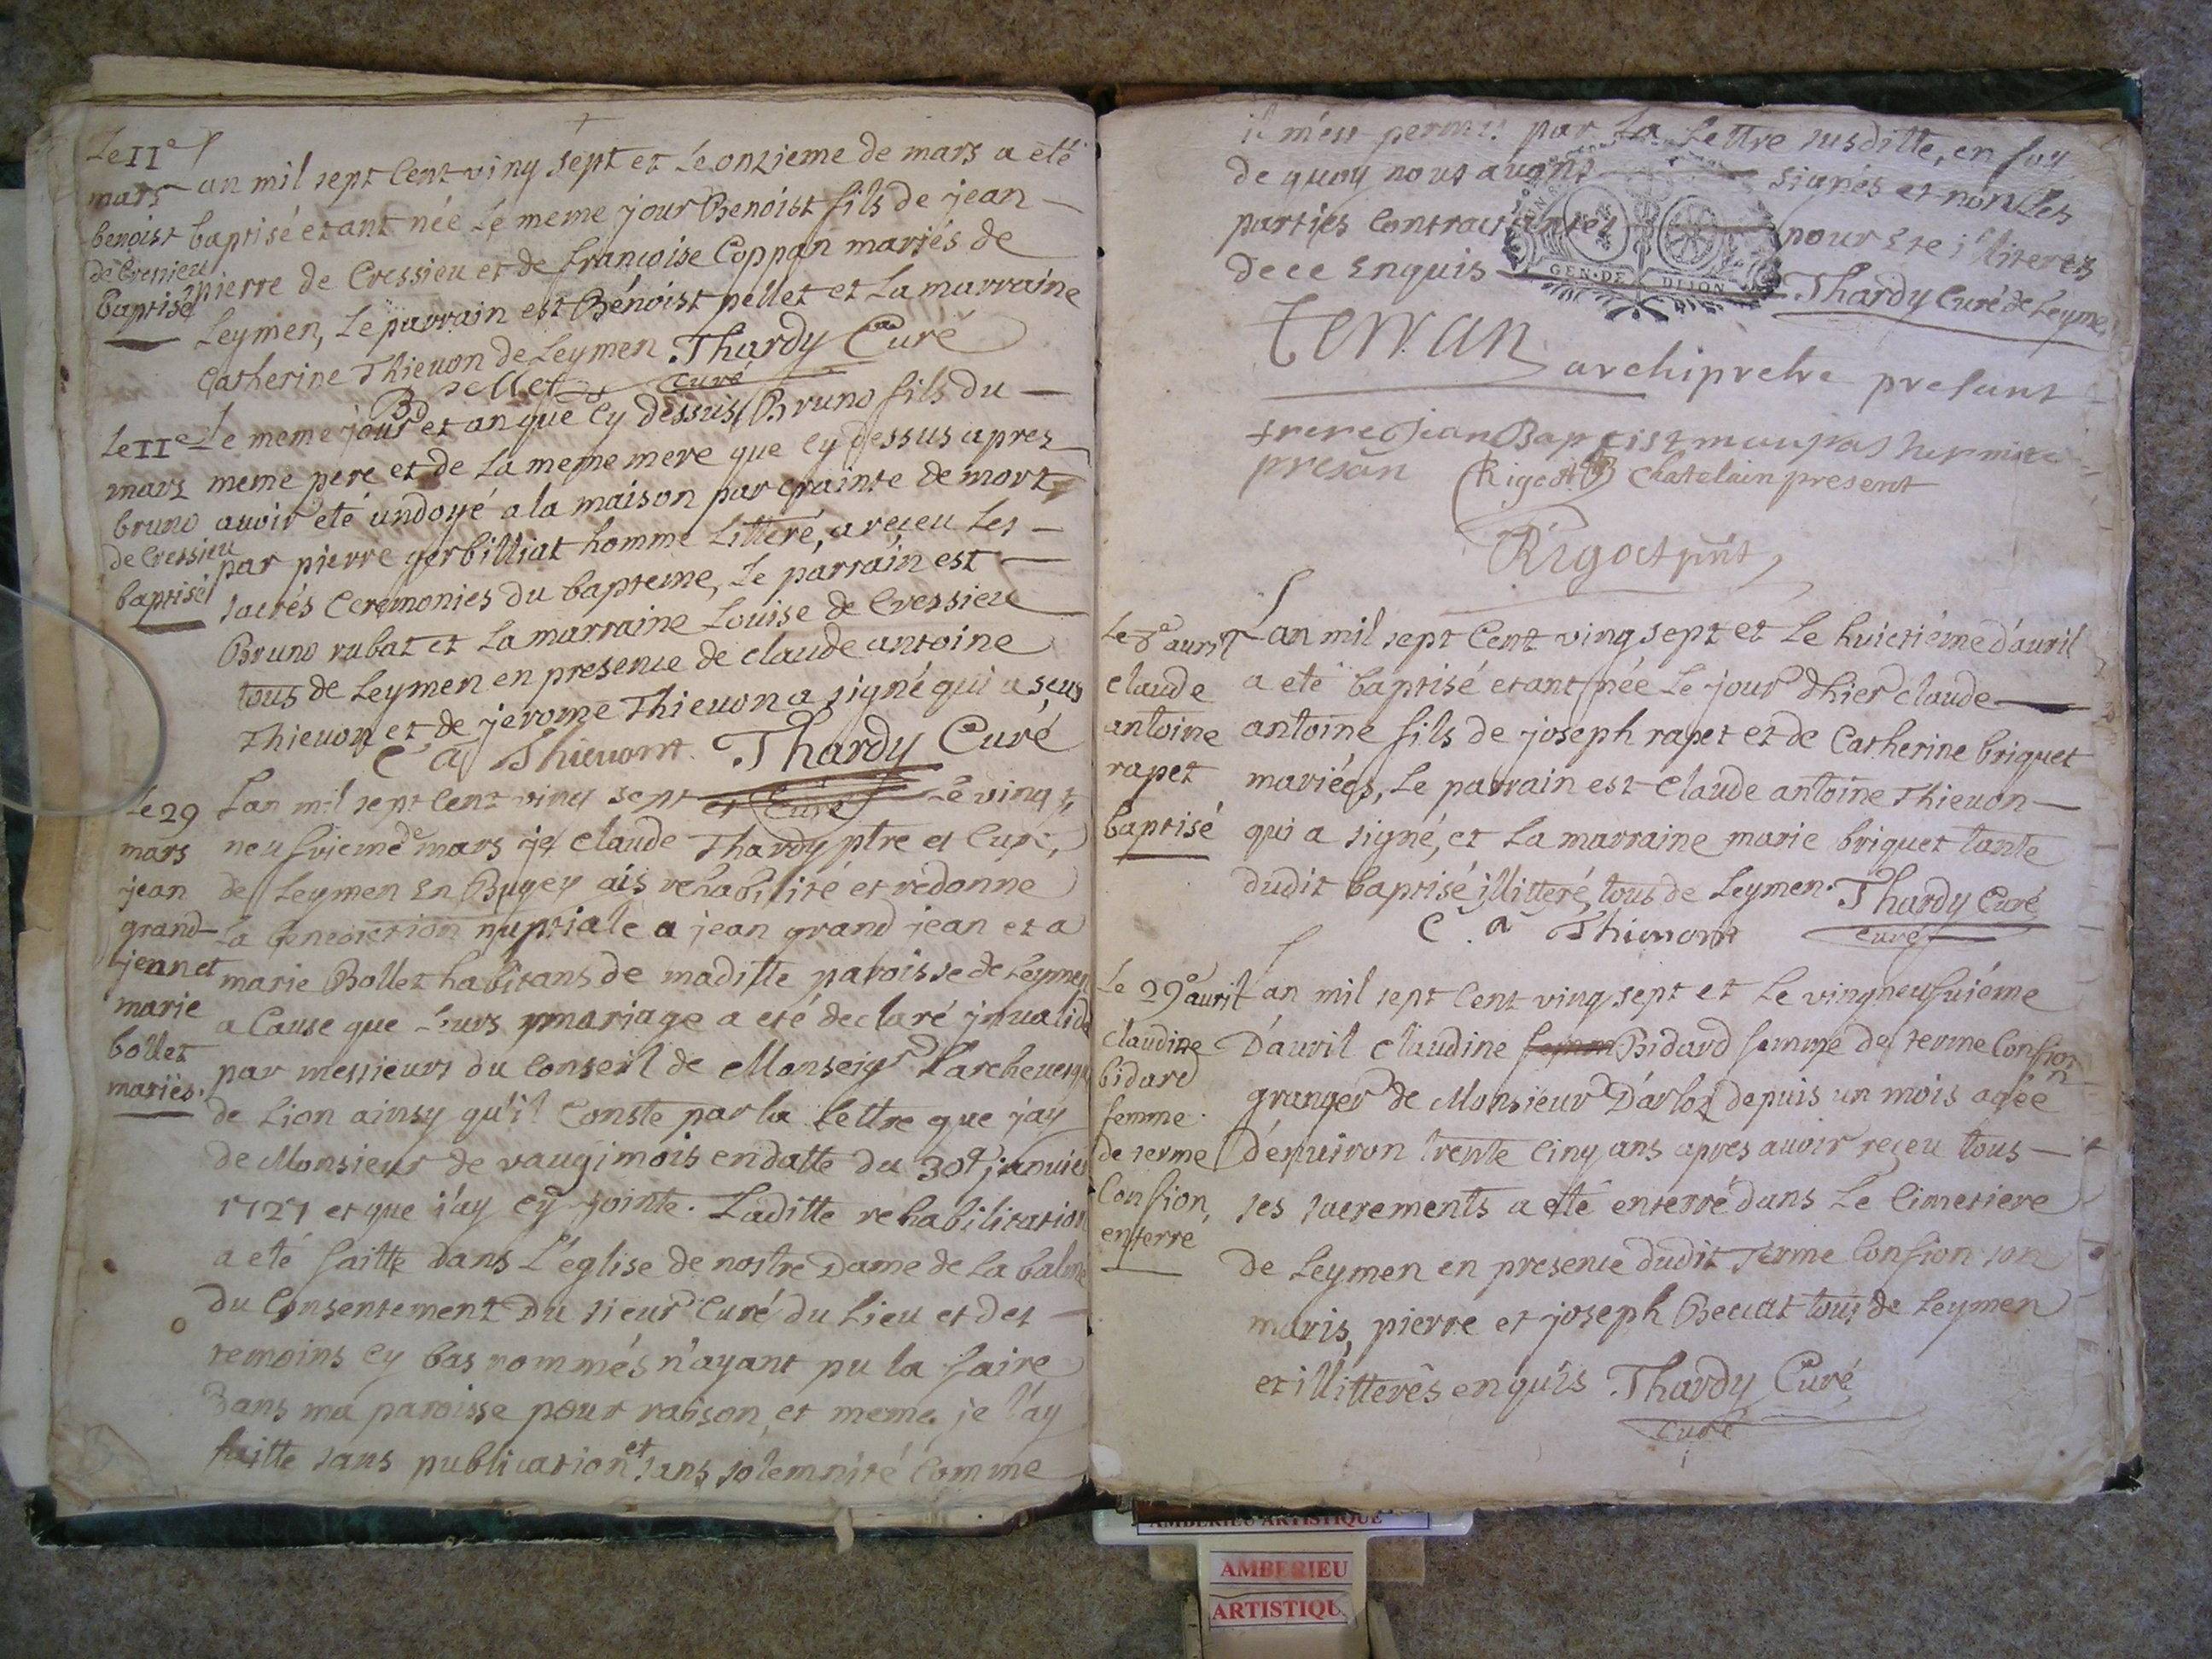 Le 11e
mars
benoist
de Cressieu
baptisé
Lan mil sept Cent ving sept et Le onzieme de mars a eté
baptisé etant née Le meme jour Benoist fils de jean
pierre de Cressieu et de francoise Coppan mariés de
Leymen, Le parrain est Bénoist pellet et La marraine
Catherine Thieuon de Leymen Thardy Curé
B pellet curé
Le 11e
mars
bruno
de Cressieu
baptisé
Le meme jour et an que Cy dessus Bruno fils du
meme pere et de La meme mere que Cy dessus apres
auoir eté undoyé a la maison par crainte de mort
par pierre gerbilliat homme Litteré, a reçeu Les
sacrés Ceremonies du bapteme, Le parrain est
Bruno rubat et La marraine Louise de Cressieu
tous de Leymen en presence de claude antoine
Thieuon et de jerome Thieuon a signé qui a sçus
C a Thieuont Thardy Curé
Le 29
mars
jean
grand
jean et
marie
bollet
mariés.
Lan mil sept Cent ving sept et Curé Le vingt
neufvieme de mars je Claude Thardy ptre et Curé
de Leymen En Bugey ais rehabilité et redonne
La benediction nuptiale a jean grand jean et a
marie Bollet habitans de maditte paroisse de Leymen
a Cause que Leurs mariage a eté declaré jnualide
par messieurs du Conseil de Monseigr Larcheuesque
de Lion ainsy qu'il Conste par la Lettre que jay
de Monsieur de vaugimois en datte du 30e januier
1727 et que j'ay Cy jointe. Laditte rehabilitation
a eté faitte dans L'église de nostre Dame de La balme
du Consentement Du sieur Curé du Lieu et des
temoins Cy bas nommés n'ayant pu la faire
Dans ma paroisse pour raison, et meme je l'ay
faitte sans publication et sans solemnité Comme
il m'est permis par La Lettre susditte, en foy
de quoy nous auons signés et non Les
parties Contractantes pour Etre illiterés
de ce Enquis Thardy Curé de Leymen
GEN · DE DIJON
Terran archipretre present
frere Jean Baptist maupas hermite
presan Rigot Chatelain present
Rigoct pnt
Le 8e auril
claude
antoine
rapet
baptisé
Lan mil sept Cent ving sept et Le huictiéme d'auril
a eté baptisé etant née Le jour d'hier claude
antoine fils de joseph rapet et de Catherine briquet
mariées, Le parrain est Claude antoine Thieuon
qui a signé, et La marraine marie briquet tante
dudit baptisé illitteré, tous de Leymen. Thardy Curé
C. a Thieuont curé
Le 29e auril
Claudine
bidard
femme
de terme
Confion
enterré
Lan mil sept Cent ving sept et Le vingneufuiéme
D'auril Claudine femm Bidard femme de terme Confion
granger de Monsieur D'arloz depuis un mois agée
d'enuiron trente Cinq ans apres auoir reçeu tous
ses sacrements a eté enterré dans Le Cimetiere
de Leymen en presence dudit terme Confion son
maris, pierre et joseph Beccat tous de Leymen
et illitterês enquis Thardy Curé
curé
AMBERIEU ARTISTIQUE
AMBERIEU
ARTISTIQU